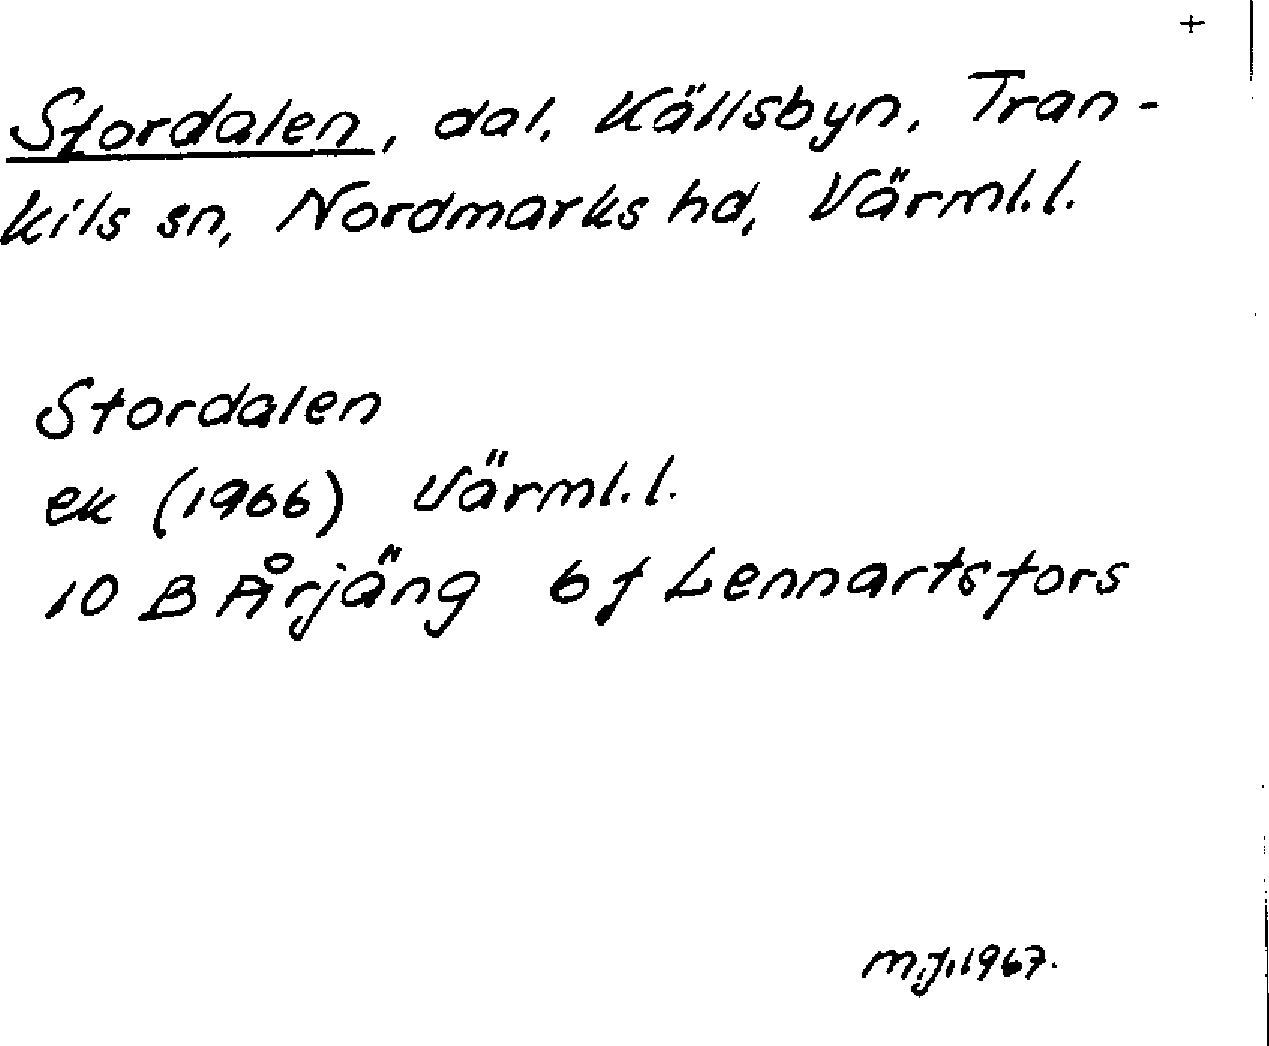 +
Stordalen, dal. Källsbyn, Tran-
kils sn, Nordmarks hd, Värml.l.
Stordalen
ek (1966) Värml.l.
10 B Årjäng 6 f Lennartsfors
M.J.1967.